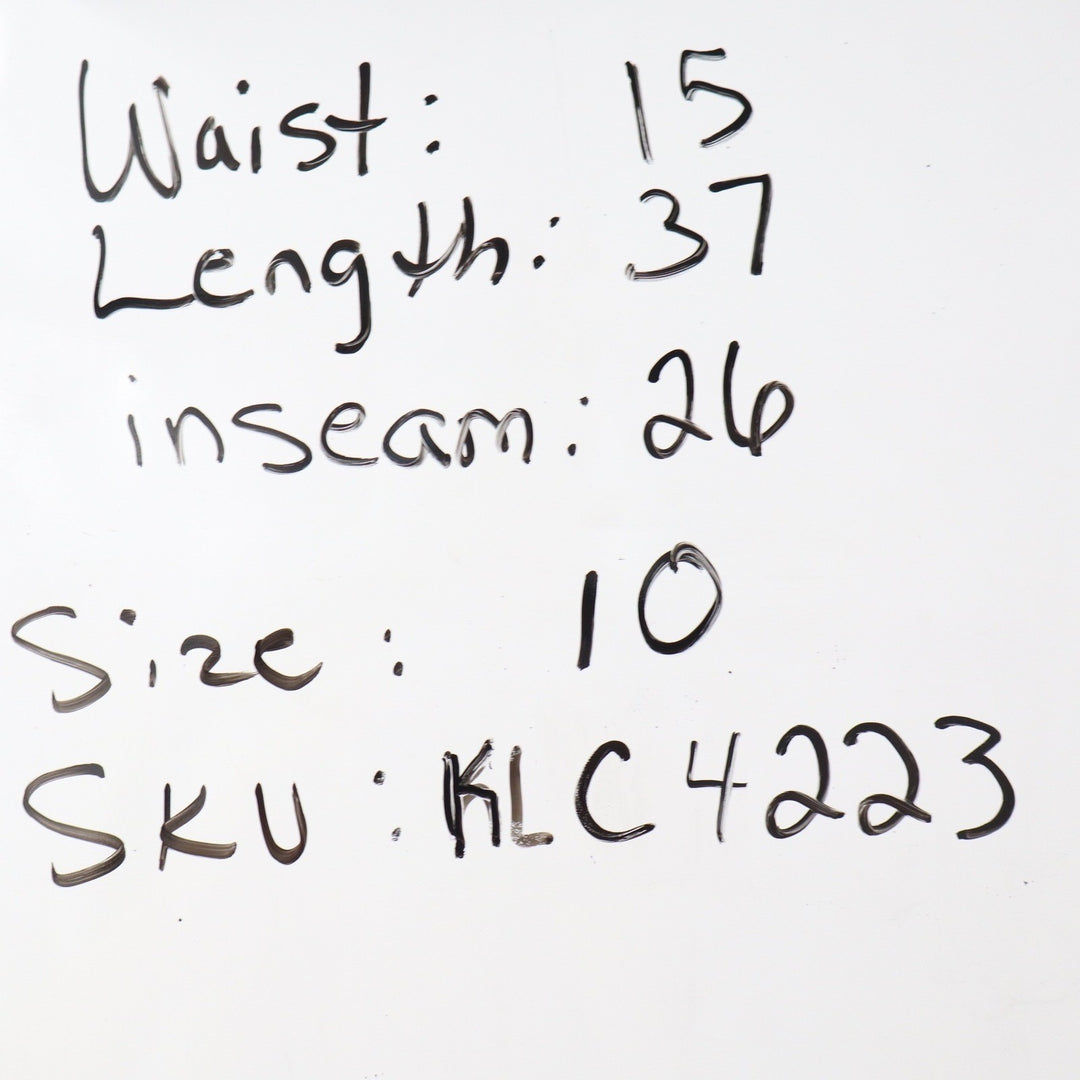 Waist: 15
Length: 37
inseam: 26
Size: 10
SKU: KLC4223